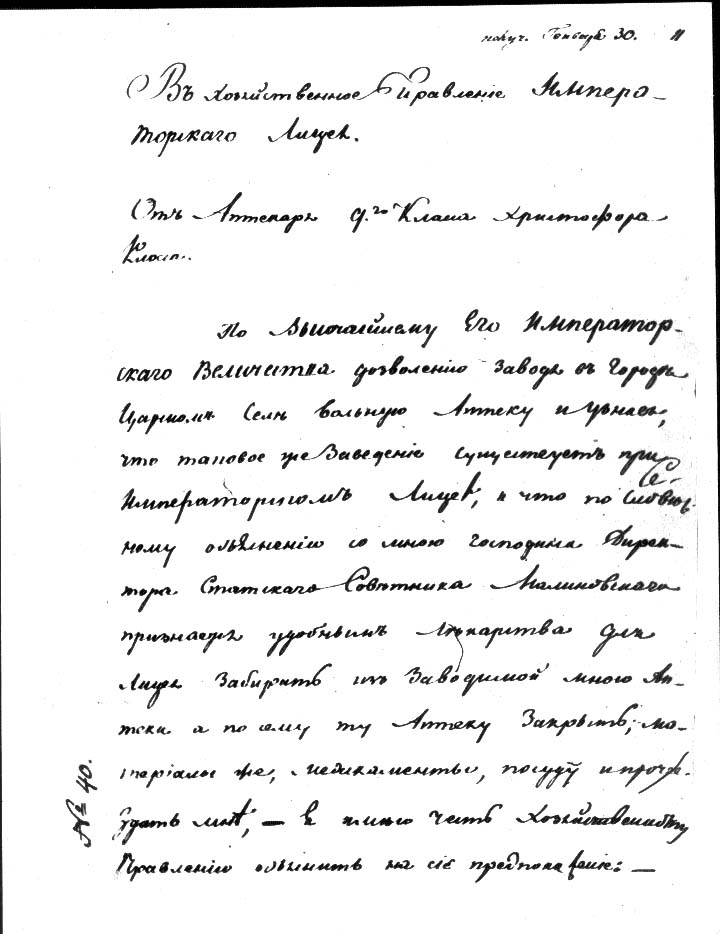 получ. Генваря 30. 11
Въ Хозяйственное Правленіе Импера-
торскаго Лицея.
Отъ Аптекаря 9.го Класа Христофора
По Высочайшему Его Император-
скаго Величества дозволенію заводя въ Городѣ
Царскомъ Селѣ вольную Аптеку и узнавъ,
что таковое же Заведеніе существуетъ при
Императорскомъ Лицеѣ, и что по Словес-
ному объясненію со мною господина Дирек-
тора Статскаго Совѣтника Малиновскаго
признается удобнымъ лѣкарства для
Лицея Забирать изъ Заводимой мною Ап-
теки а по сему ту Аптеку Закрыть; ма-
теріалы же, медикаменты, посуду и проч.
здать мнѣ, — я имѣю честь Хозяйственному
Правленію объяснить на сіе предположеніе: —
№ 40.